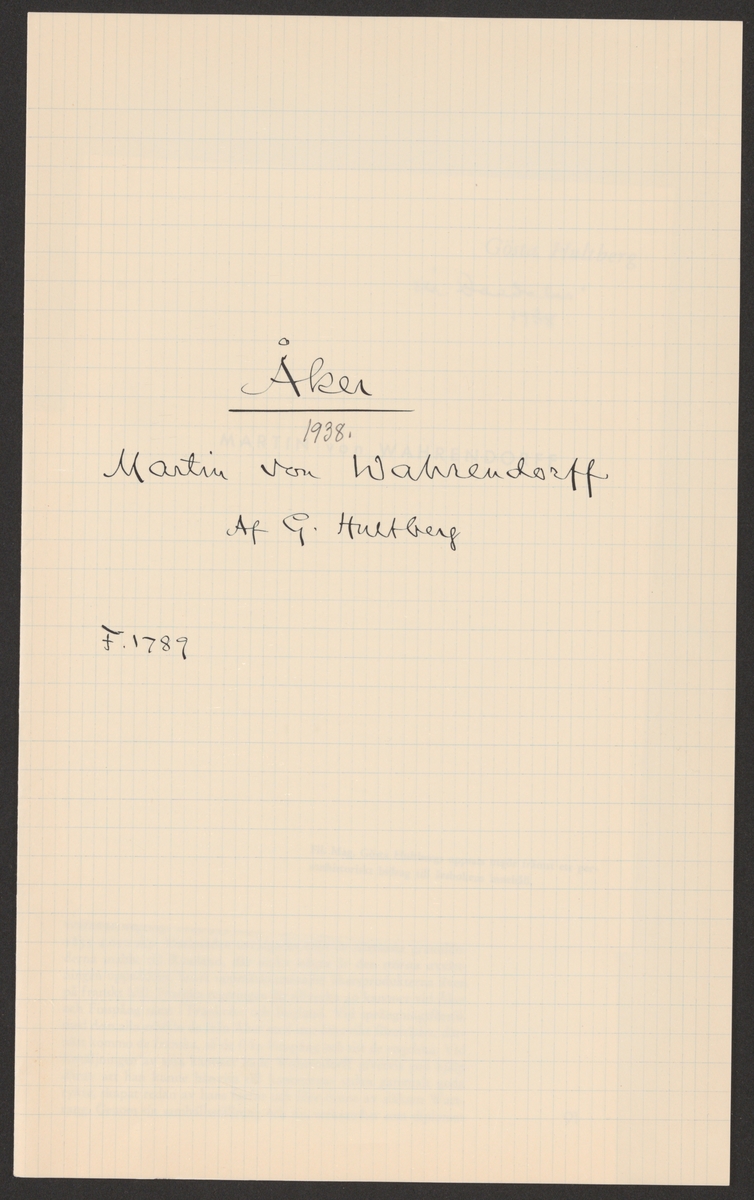 Åker
1938.
Martin von Wahrendorff
Af G. Hultberg
F.1789